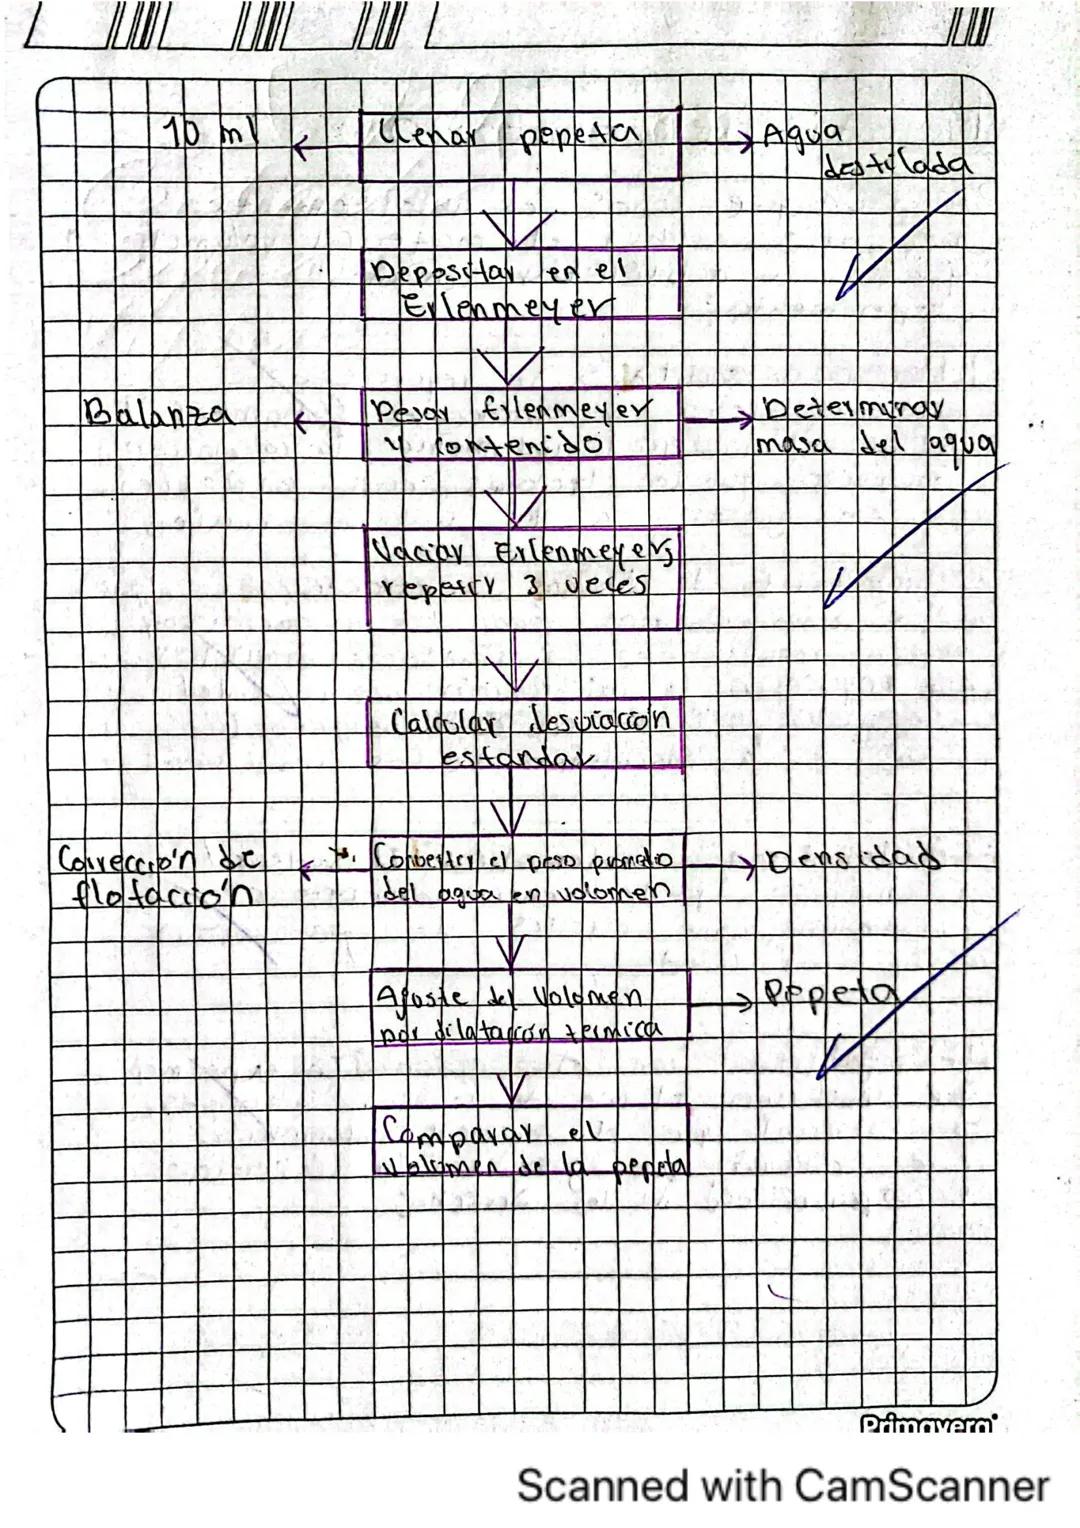 10 ml
Llenar pepeta
Agua
destilada
Depositar en el
Erlenmeyer
Balanza
Pesar Erlenmeyer
y contenido
Determinar
masa del agua
Vaciar Erlenmeyer,
repetir 3 veces
Calcular desviación
estandar
Corrección de
flotación
Converter el peso promedio
del agua en volomen
Densidad
Ajoste del Volomen
por dilatación termica
Pepeta
Comparar el
volumen de la pepeta
Primavera
Scanned with CamScanner